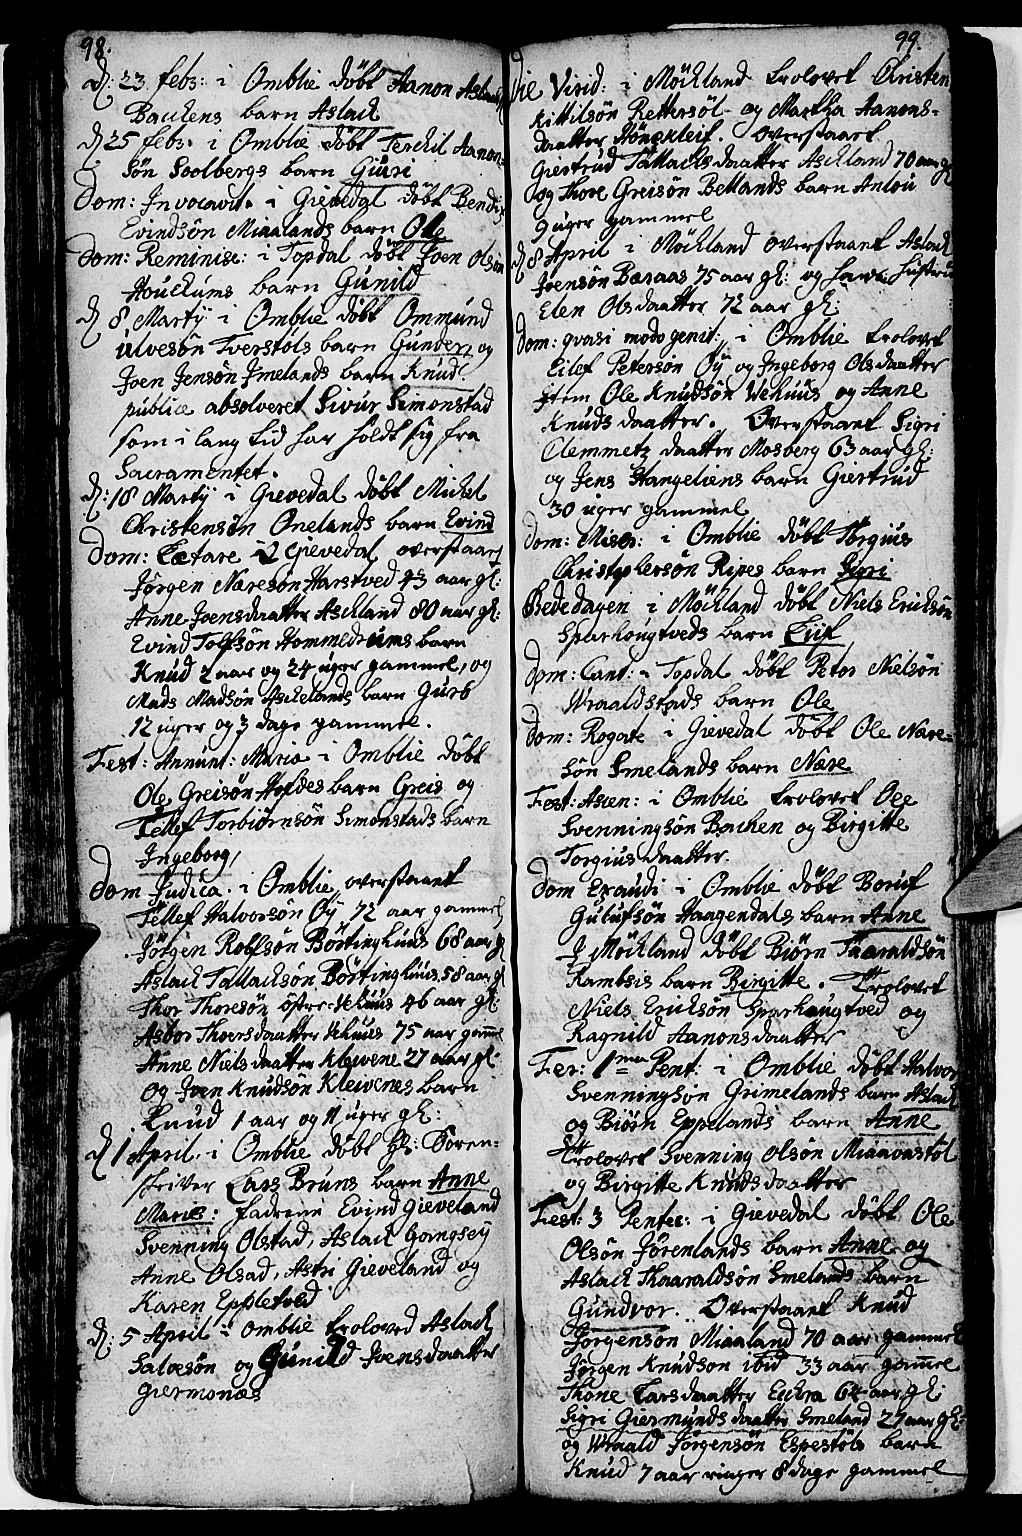 98.
d: 23 febr: i Omblie döbt Aanon Aslach
Bachens barn Aslach
d 25 febr. i Omblie döbt Terchil Aanon-
sön Soolbergs barn Guri
Dom: Invocavit. i Gievedal döbt Bendix
Evindsön Miaalands barn Ole
Dom: Reminisc: i Topdal döbt Joen Olsön
Houchums barn Gunild
d 8 Martij i Omblie döbt Ommund
Ulvesön Tverstöls barn Gunder, og
Joen Jensön Jmelands barn Knud.
publice absolveret Sivur Simonstad
som i lang tid har holdt sig fra
Sacramentet.
d: 18 Martij i Gievedal döbt Michel
Christensön Onelands barn Evind
Dom: Lætare i Gievedal overstaart
Jörgen Næresön Harstved 43 aar gl:
Anne Joensdaatter Aschland 80 aar gl:
Evind Tolfsön Hommedrums barn
Knud 2 aar og 24 uger gammel, og
Mads Madsön Aschelands barn Guro
12 uger og 3 dage gammel.
Fest: Annunt: Mariæ i Omblie döbt
Ole Greisön Hofdes barn Greis og
Tellef Torbiörnsön Simonstads barn
Ingeborg,
Dom Judica. i Omblie overstaart
Tellef Halvorsön Öy 72 aar gammel
Jörgen Rolfsön Börtinghuus 68 aar gl
Aslach Tallachsön Börtinghuus 58 aar gl
Thor Thoresön öfre-Vehuus 46 aar gl:
Asbor Thorsdaatter Vehuus 75 aar gam̄el
Anne Nielsdaatter Klewene 27 aar gl:
og Joen Knudsön Klewenes barn
Knud 1 aar og 11 uger gl:
d 1 April. i Omblie döbt Hr: Soren-
skriver Lars Bruns barn Anne
Marie: fadrene Evind Gieveland
Svenning Olstad, Aslach Gangsey
Anne Olsad, Astri Gieveland og
Karen Eppletvold
d: 5 April i Omblie troloved Aslach
Salvesön og Gunild Joensdaatter
Giermonæs
99.
die Virid: i Möckland trolovet Christen
Kittilsön Rettersöl- og Martha Aanons-
daatter Hönekleif. Overstaart
Giertrud Tallachsdaatter Aschland 70 aar gl
og Thore Greisön Betlands barn Anlou
9 uger gammel
d 8 April i Möckland overstaart Aslach
Joensön Baraas 75 aar gl: og hans hustru
Elen Olsdaatter 72 aar gl:
Dom: qvasi modogenit: i Omblie trolovet
Eilef Petersön Öy og Ingeborg Olsdaatter
item Ole Knudsön Wehuus og Anne
Knudsdaatter. Overstaart Sigri
Clemmetzdaatter Mosberg 63 aar gl:
og Jens Stangeliens barn Giertrud
30 uger gammel
Dom: Miser: i Omblie döbt Torgius
Christophersön Ripes barn Sigri
Bededagen i Möckland döbt Niels Erichsön
Sparhougtveds barn Leif
Dom: Cant: i Topdal döbt Peter Nielsön
Wraaldstads barn Ole
Dom: Rogate i Gievedal döbt Ole Nære-
sön Smelands barn Nære
Fest: Ascen: i Omblie trolovet Ole
Svenningsön Bachen og Birgitte
Torgiusdaatter.
Dom Exaudi i Omblie döbt Boruf
Gulufsön Haagendals barn Anne
I Möckland döbt Biörn Thaaraldsön
Kambsis barn Birgitte. Trolovet
Niels Erichsön Sparhougtved og
Ragnild Aanonsdaatter
Fer: 1ma Pent: i Omblie döbt Halvor
Svenningsön Grimelands barn Aslach
og Biörn Eppelands barn Anne
Trolovet Svenning Olsön Miaavastöl
og Birgitte Knudsdaatter
Fest: 3 Pentec: i Gievedal döbt Ole
Olsön Jörenlands barn Anne og
Aslach Thaaraldsön Smelands barn
Gundvor. Overstaart Knud
Jörgensön Miaaland 70 aar gammel
Jörgen Knudsön ibid 33 aar gam̄el
Thone Larsdaatter Eichra 64 aar gl:
Sigri Giermundsdaatter Smeland 27 aar gl:
og Wraald Jörgensön Espestöls barn
Knud 7 aar ringer 8 dage gammel